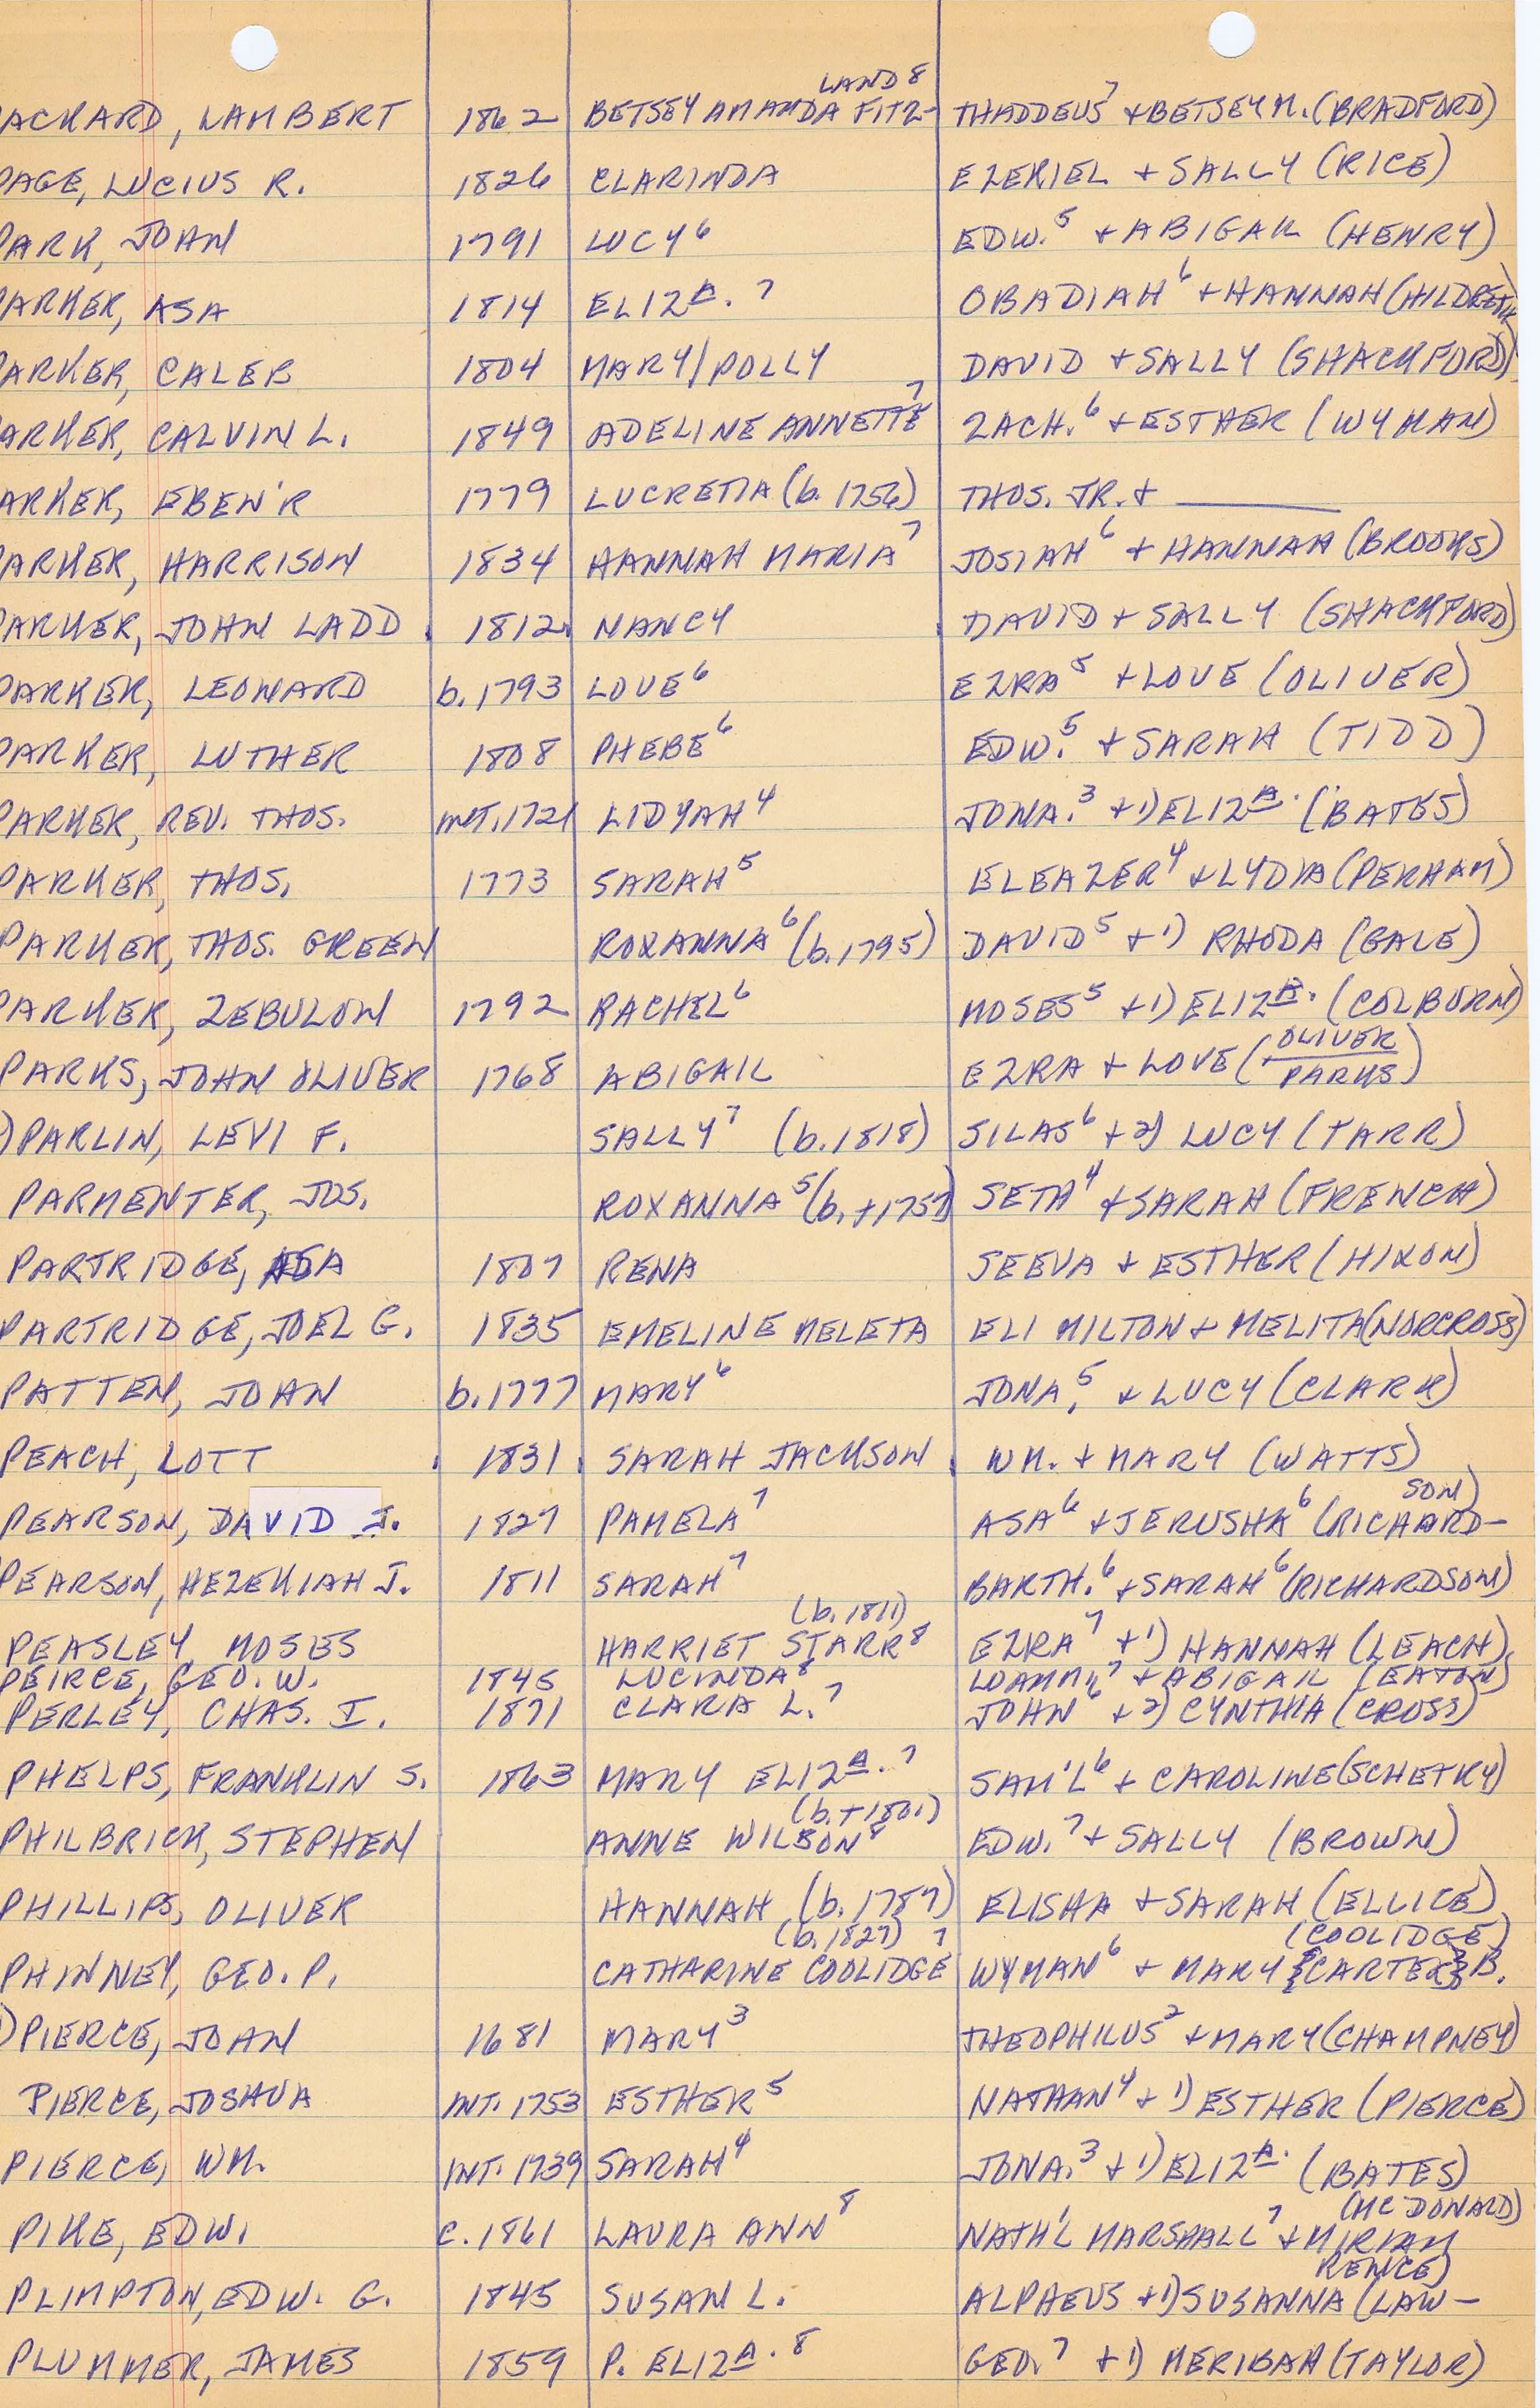 LAND⁸
ACKARD, LAMBERT 1862 BETSEY AMANDA FITZ- THADDEUS⁷ + BETSEY M. (BRADFORD)
PAGE, LUCIUS R. 1826 CLARINDA EZEKIEL + SALLY (RICE)
PARK, JOHN 1791 LUCY⁶ EDW.⁵ + ABIGAIL (HENRY)
PARKER, ASA 1814 ELIZᴬ. ⁷ OBADIAH⁶ + HANNAH (HILDRETH
PARKER, CALEB 1804 MARY/POLLY DAVID + SALLY (SHACKFORD)
PARKER, CALVIN L. 1849 ADELINE ANNETTE⁷ ZACH.⁶ + ESTHER (WYMAN)
PARKER, EBEN'R 1779 LUCRETIA (b. 1756) THOS. JR. + ______
PARKER, HARRISON 1834 HANNAH MARIA⁷ JOSIAH⁶ + HANNAH (BROOKS)
PARKER, JOHN LADD 1812 NANCY DAVID + SALLY (SHACKFORD)
PARKER, LEONARD b. 1793 LOVE⁶ EZRA⁵ + LOVE (OLIVER)
PARKER, LUTHER 1808 PHEBE⁶ EDW.⁵ + SARAH (TIDD)
PARKER, REV. THOS. INT. 1721 LIDYAH⁴ JONA.³ + 1) ELIZᴬ. (BATES)
PARKER, THOS. 1773 SARAH⁵ ELEAZER⁴ + LYDIA (PERHAM)
PARKER, THOS. GREEN ROXANNA⁶ (b. 1795) DAVID⁵ + 1) RHODA (GALE)
PARKER, ZEBULON 1792 RACHEL⁶ MOSES⁵ + 1) ELIZᴬ. (COLBURN)
PARKS, JOHN OLIVER 1768 ABIGAIL EZRA + LOVE (OLIVER/PARKS)
)PARLIN, LEVI F. SALLY⁷ (b. 1818) SILAS⁶ + 2) LUCY (TARR)
PARMENTER, JOS. ROXANNA⁵ (b. +1757) SETH⁴ + SARAH (FRENCH)
PARTRIDGE, ASA 1807 RENA SEEVA + ESTHER (HIXON)
PARTRIDGE, JOEL G. 1835 EMELINE MELETA ELI MILTON + MELITA (NORCROSS)
PATTEN, JOHN b. 1777 MARY⁶ JONA.⁵ + LUCY (CLARK)
PEACH, LOTT 1831 SARAH JACKSON WM. + MARY (WATTS)
SON)
PEARSON, DAVID J. 1827 PAMELA⁷ ASA⁶ + JERUSHA⁶ (RICHARD-
PEARSON, HEZEKIAH J. 1811 SARAH⁷ BARTH.⁶ + SARAH⁶ (RICHARDSON)
(b. 1811)
PEASLEY, MOSES HARRIET STARR⁸ EZRA⁷ + 1) HANNAH (LEACH)
PEIRCE, GEO. W. 1845 LUCINDA⁸ LOAMMI⁷ + ABIGAIL (EATON)
PERLEY, CHAS. I. 1871 CLARA L.⁷ JOHN⁶ + 2) CYNTHIA (CROSS)
PHELPS, FRANKLIN S. 1863 MARY ELIZᴬ. ⁷ SAM'L⁶ + CAROLINE (SCHETKY)
(b. +1801)
PHILBRICK, STEPHEN ANNE WILSON⁸ EDW.⁷ + SALLY (BROWN)
PHILLIPS, OLIVER HANNAH (b. 1787) ELISHA + SARAH (ELLICE)
(b. 1827) ⁷ (COOLIDGE)
PHINNEY, GEO. P. CATHARINE COOLIDGE WYMAN⁶ + MARY {CARTER} B.
)PIERCE, JOHN 1681 MARY³ THEOPHILUS² + MARY (CHAMPNEY)
PIERCE, JOSHUA INT. 1753 ESTHER⁵ NATHAN⁴ + 1) ESTHER (PIERCE)
PIERCE, WM. INT. 1739 SARAH⁴ JONA.³ + 1) ELIZᴬ. (BATES)
(MC DONARD)
PIKE, EDW. c. 1861 LAURA ANN⁸ NATH'L MARSHALL⁷ + MIRIAM
RENCE)
PLIMPTON, EDW. G. 1845 SUSAN L. ALPHEUS + 1) SUSANNA (LAW-
PLUMMER, JAMES 1859 P. ELIZᴬ. ⁸ GEO.⁷ + 1) MERIBAH (TAYLOR)